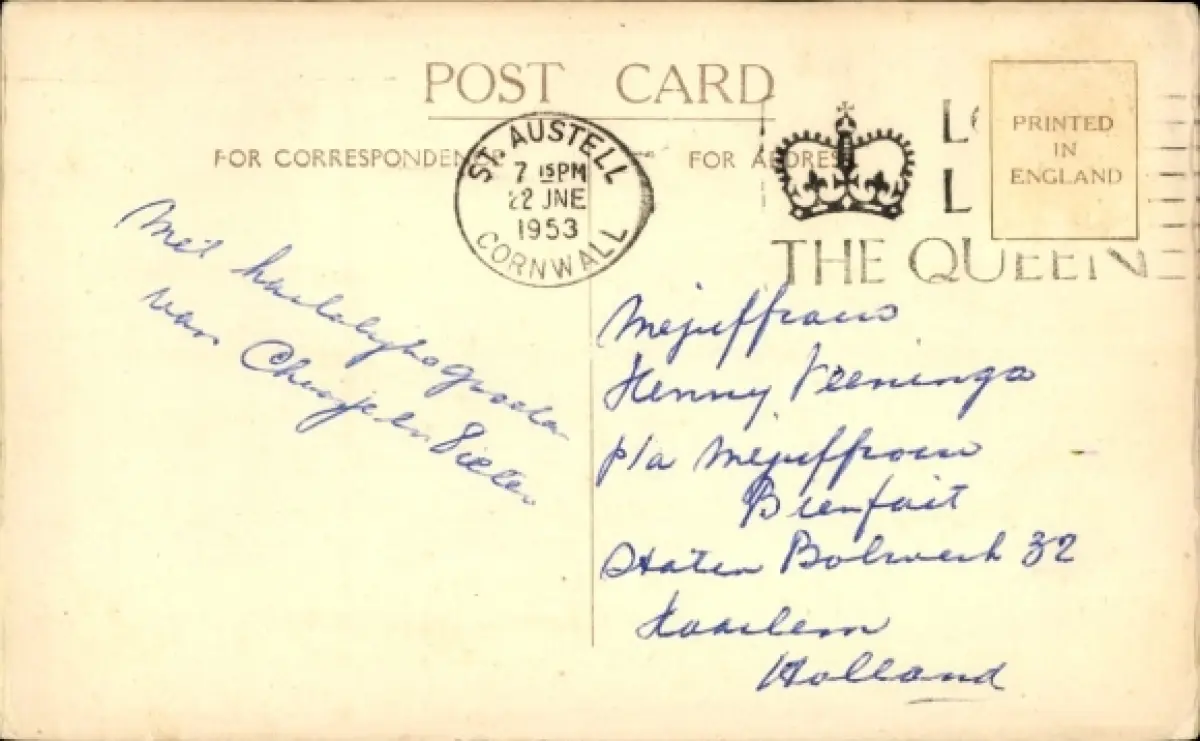 POST CARD
FOR CORRESPONDEN
FOR ADDRESS
ST. AUSTELL
7 15PM
22 JNE
1953
CORNWALL
L
L
THE QUEEN
PRINTED
IN
ENGLAND
Met hartelijke groeten
van
Mejuffrouw
Henny Veeninga
p/a Mejuffrouw
Bienfait
Staten Bolwerk 32
Haarlem
Holland